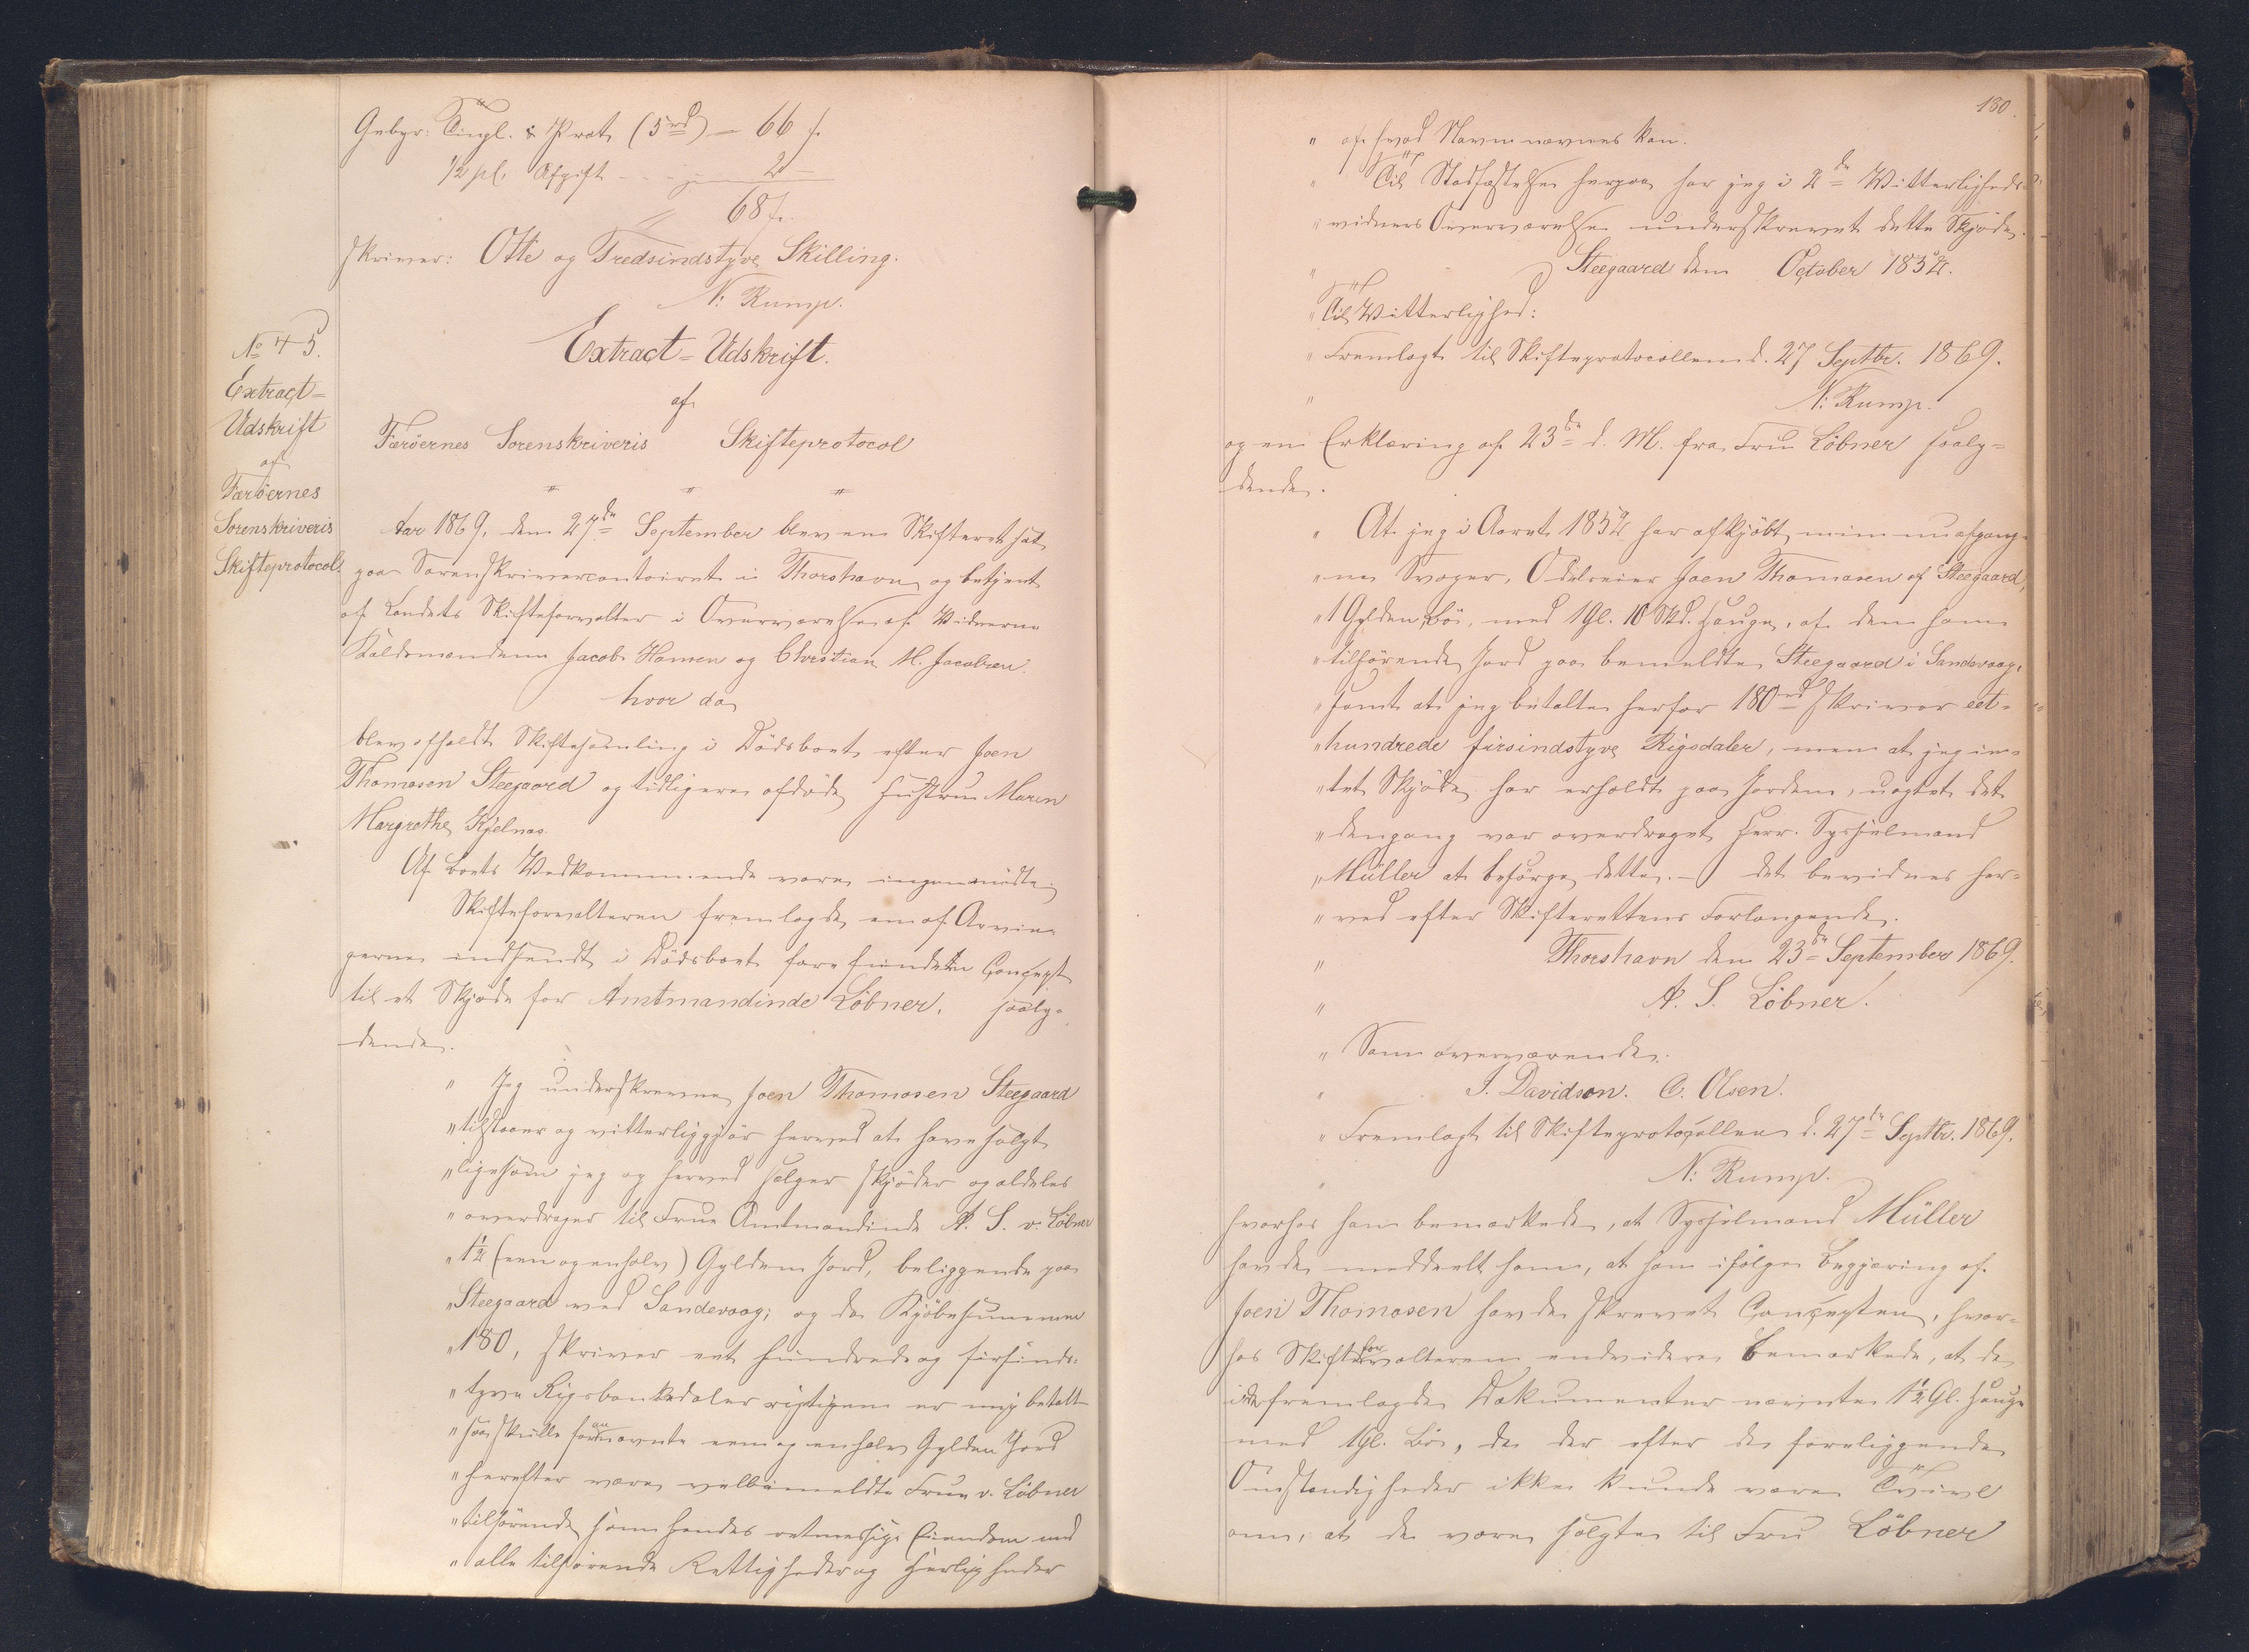 Gebyr: Tingl. & Prot. (5 rd) — 66 s.
1/2 pC. Afgift - - - 2 -
68 s.
skriver: Otte og Tredsindstyve Skilling.
N: Rump.
No 45.
Extract=
Udskrift
af
Færöernes
Sorenskriveris
Skifteprotocol.
Extract=Udskrift.
af
Færöernes Sorenskriveris Skifteprotocol
Aar 1869, den 27de September blev en Skifteret sat
paa Sorenskrivercontoiret i Thorshavn og betjent
af Landets Skifteforvalter i Overværelse af Vidnerne
Kaldsmændene Jacob Hansen og Christian M. Jacobsen.
hvor da
blev afholdt Skiftesamling i Dödsboet efter Joen
Thomasen Steegaard og tidligere afdöde Hustrue Maren
Margrethe Kjelnæs.
Af Boets Vedkommende vare ingen mödte.
Skifteforvalteren fremlagde en af Arvin-
gerne indsendt i Dödsboet forefunden Concept
til et Skjøde for Amtmandinde Löbner, saaly-
dende.
" Jeg underskrevne Joen Thomasen Steegaard
" tilstaaer og vitterliggjör herved at have solgt
" ligesom jeg og herved sælger skjöder og aldeles
" overdrager til Frue Amtmandinde A. S. v. Löbner
" 1½ (een og en halv) Gylden Jord, beliggende paa
" Steegaard ved Sandevaag; og da Kjöbesummen
" 180, skriver eet hundrede og firsinds-
" tyve Rigsbankdaler rigtigen er mig betalt
" saa skulle fornævnte een og en halv Gylden Jord
" herefter være velbemeldte Frue v. Löbner
" tilhörende som hendes retmessige Eiendom med
" alle tilhörende Rettigheder og Herligheder
180.
" af hvad Navn nævnes kan.
" Til Stadfæstelse herpaa har jeg i 2de Witterligheds-
" vidners Overværelse underskrevet dette Skjøde.
" Steegaard den October 1852.
" Til Witterlighed:
" Fremlagt til Skifteprotocollen d. 27 Septbr. 1869.
" N: Rump.
og en Erklæring af 23de d. M. fra Fru Löbner saaly-
dende.
" At jeg i Aaret 1852 har afkjöbt min nu afgang-
" ne Svoger, Odelseier Joen Thomasen af Steegaard,
" 1 Gylden Bö, med 1 Gl. 10 Skd. Hauge, af den ham
" tilhörende Jord paa bemeldte Steegaard i Sandevaag,
" samt at jeg betalte herfor 180 rd skriver eet-
" hundrede firsindstyve Rigsdaler, men at jeg in-
" tet Skjøde har erholdt paa Jorden, uagtet det
" dengang var overdraget Herr. Sysselmand
" Müller at besörge dette. - det bevidnes her-
" ved efter Skifterettens Forlangende.
" Thorshavn den 23de September 1869.
" A. S. Löbner.
" Som overværende:
" J. Davidson. C. Olsen.
" Fremlagt til Skifteprotocollen d. 27de Septbr. 1869.
" N: Rump.
hvorhos han bemærkede, at Sysselmand Müller
havde meddeelt ham, at han ifölge Begjæring af
Joen Thomasen havde skrevet Concepten, hvor-
hos Skifteforvalteren endvidere bemærkede, at de
i de fremlagde Dokumenter nævnte 1½ Gl. Hauge
med 1 Gl. Bö, da der efter de foreliggende
Omstændigheder ikke kunde være Tvivl
om, at de vare solgte til Fru Löbner